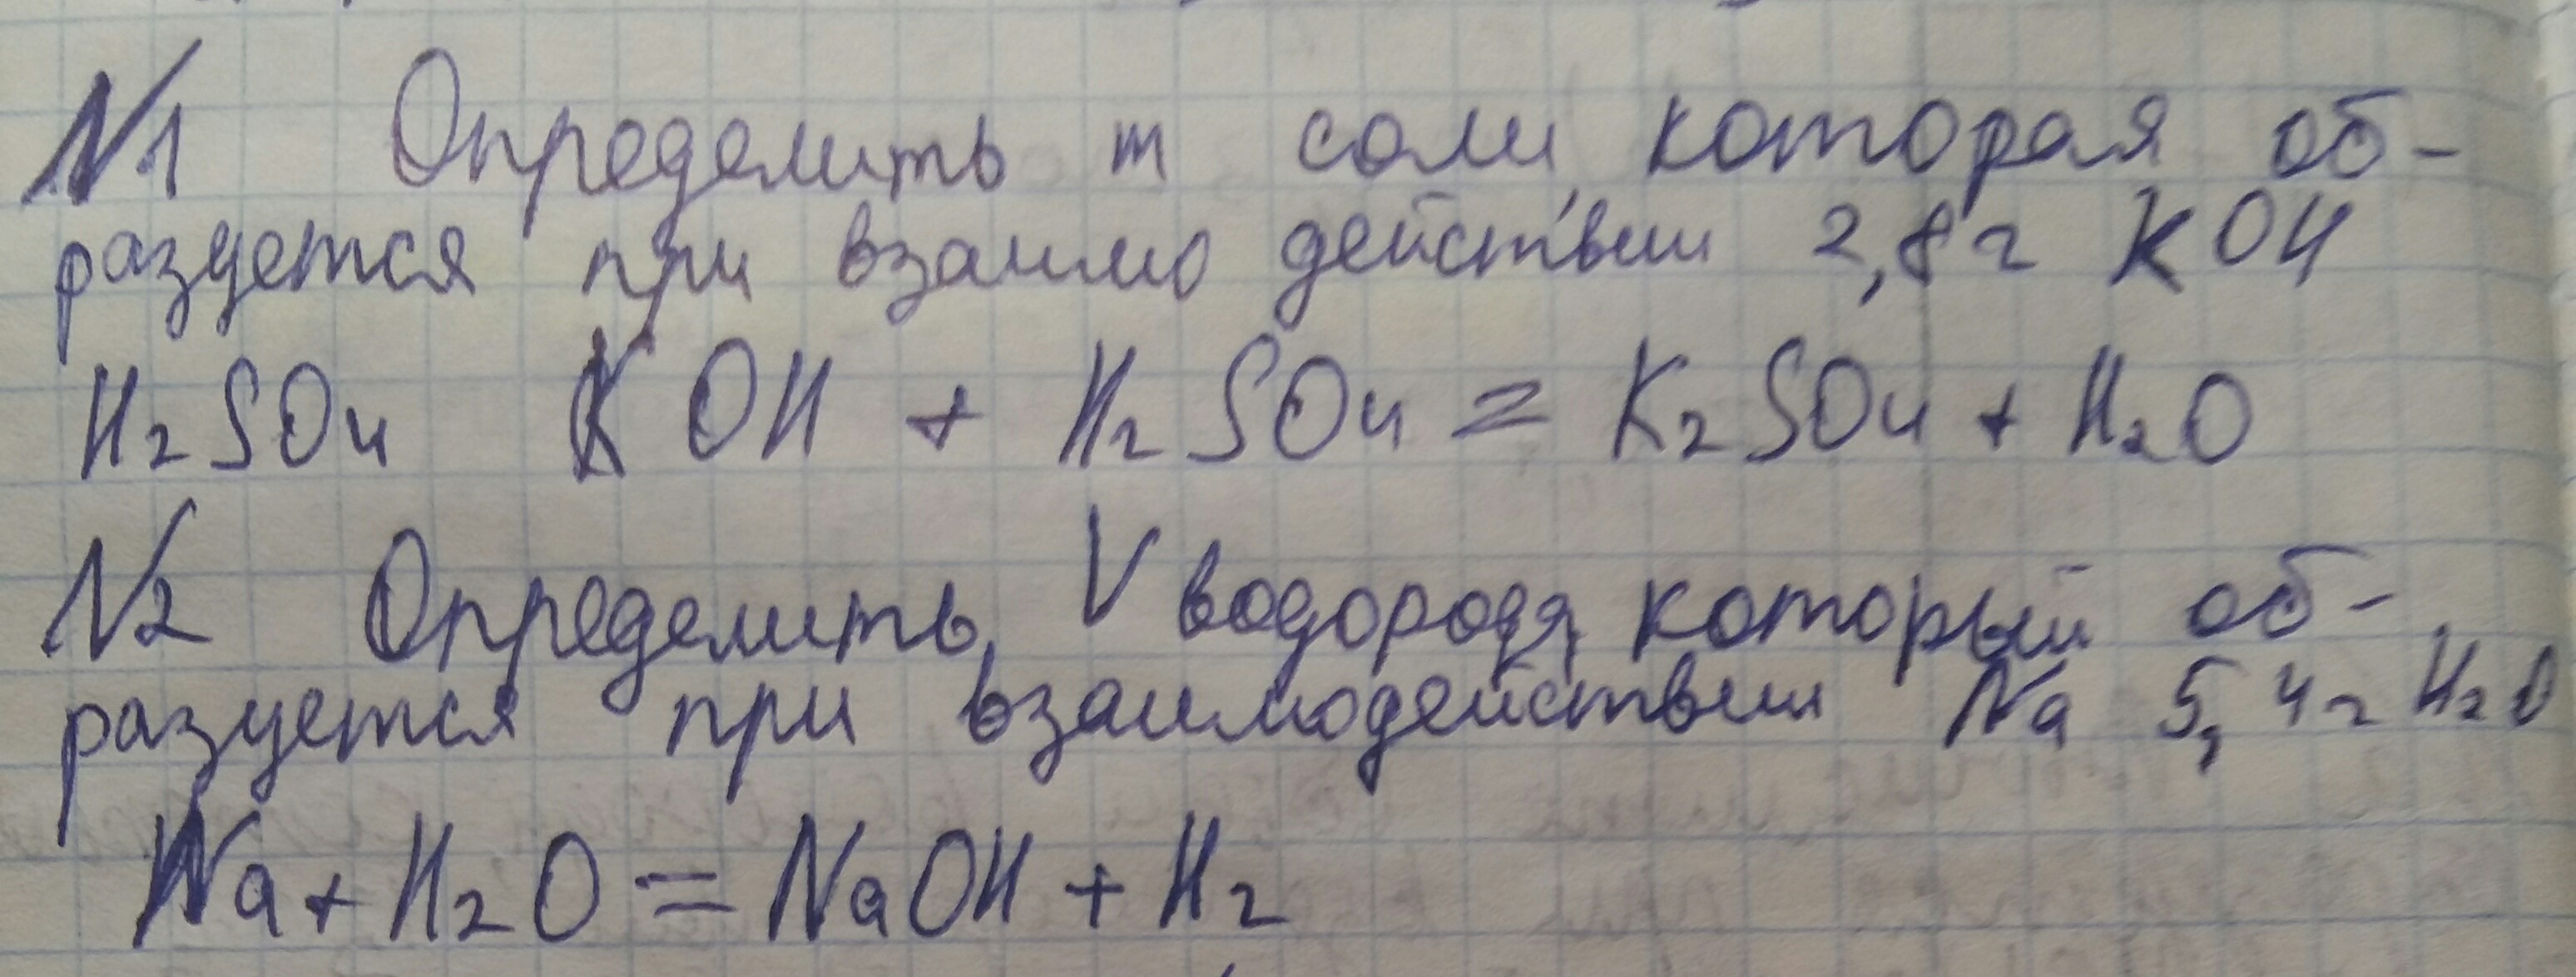 N1 Определить m соли, которая об-
разуется при взаимо действии 2,8 г KOH
H₂SO₄ KOH + H₂SO₄ = K₂SO₄ + H₂O
N2 Определить, V водорода, который об-
разуется при взаимодействии Na 5,4 г H₂O
Na + H₂O = NaOH + H₂